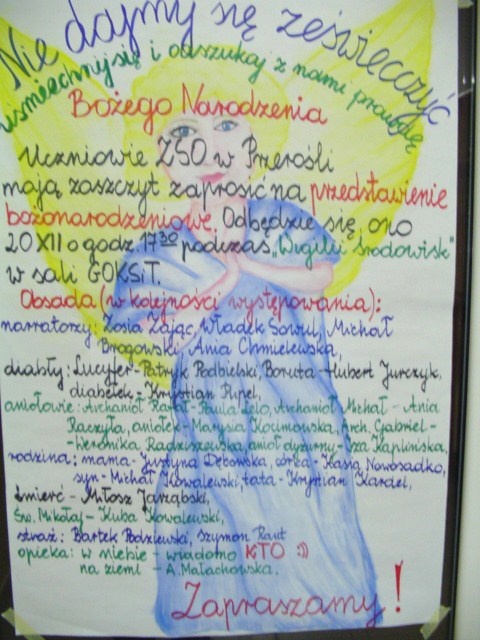 Nie dajmy się zeświecczyć
uśmiechnij się i odszukaj z nami prawdę
Bożego Narodzenia
Uczniowie ZSO w Przerośli
mają zaszczyt zaprosić na przedstawienie
bożonarodzeniowe. Odbędzie się ono
20 XII o godz. 17³⁰ podczas „Wigilii Środowisk"
w sali GOKSiT.
Obsada (w kolejności występowania):
narratorzy: Zosia Zając, Władek Sowul, Michał
Brogowski, Ania Chmielewska,
diabły: Lucyfer - Patryk Podbielski, Boruta - Hubert Jurczyk,
diabełek - Krystian Pupel,
aniołowie: Archanioł Rafał - Paula Lelo, Archanioł Michał - Ania
Raczyła, aniołek - Marysia Kocimowska, Arch. Gabriel -
- Weronika Radziszewska, anioł dyżurny - Iza Kaplińska,
rodzina: mama - Justyna Dębowska, córka - Kasia Nowosadko,
syn - Michał Kowalewski, tata - Krystian Kardel,
śmierć - Miłosz Jarząbski,
Św. Mikołaj - Kuba Kowalewski,
straż: Bartek Podziewski, Szymon Raut
opieka: w niebie - wiadomo KTO :))
na ziemi - A. Małachowska.
Zapraszamy!